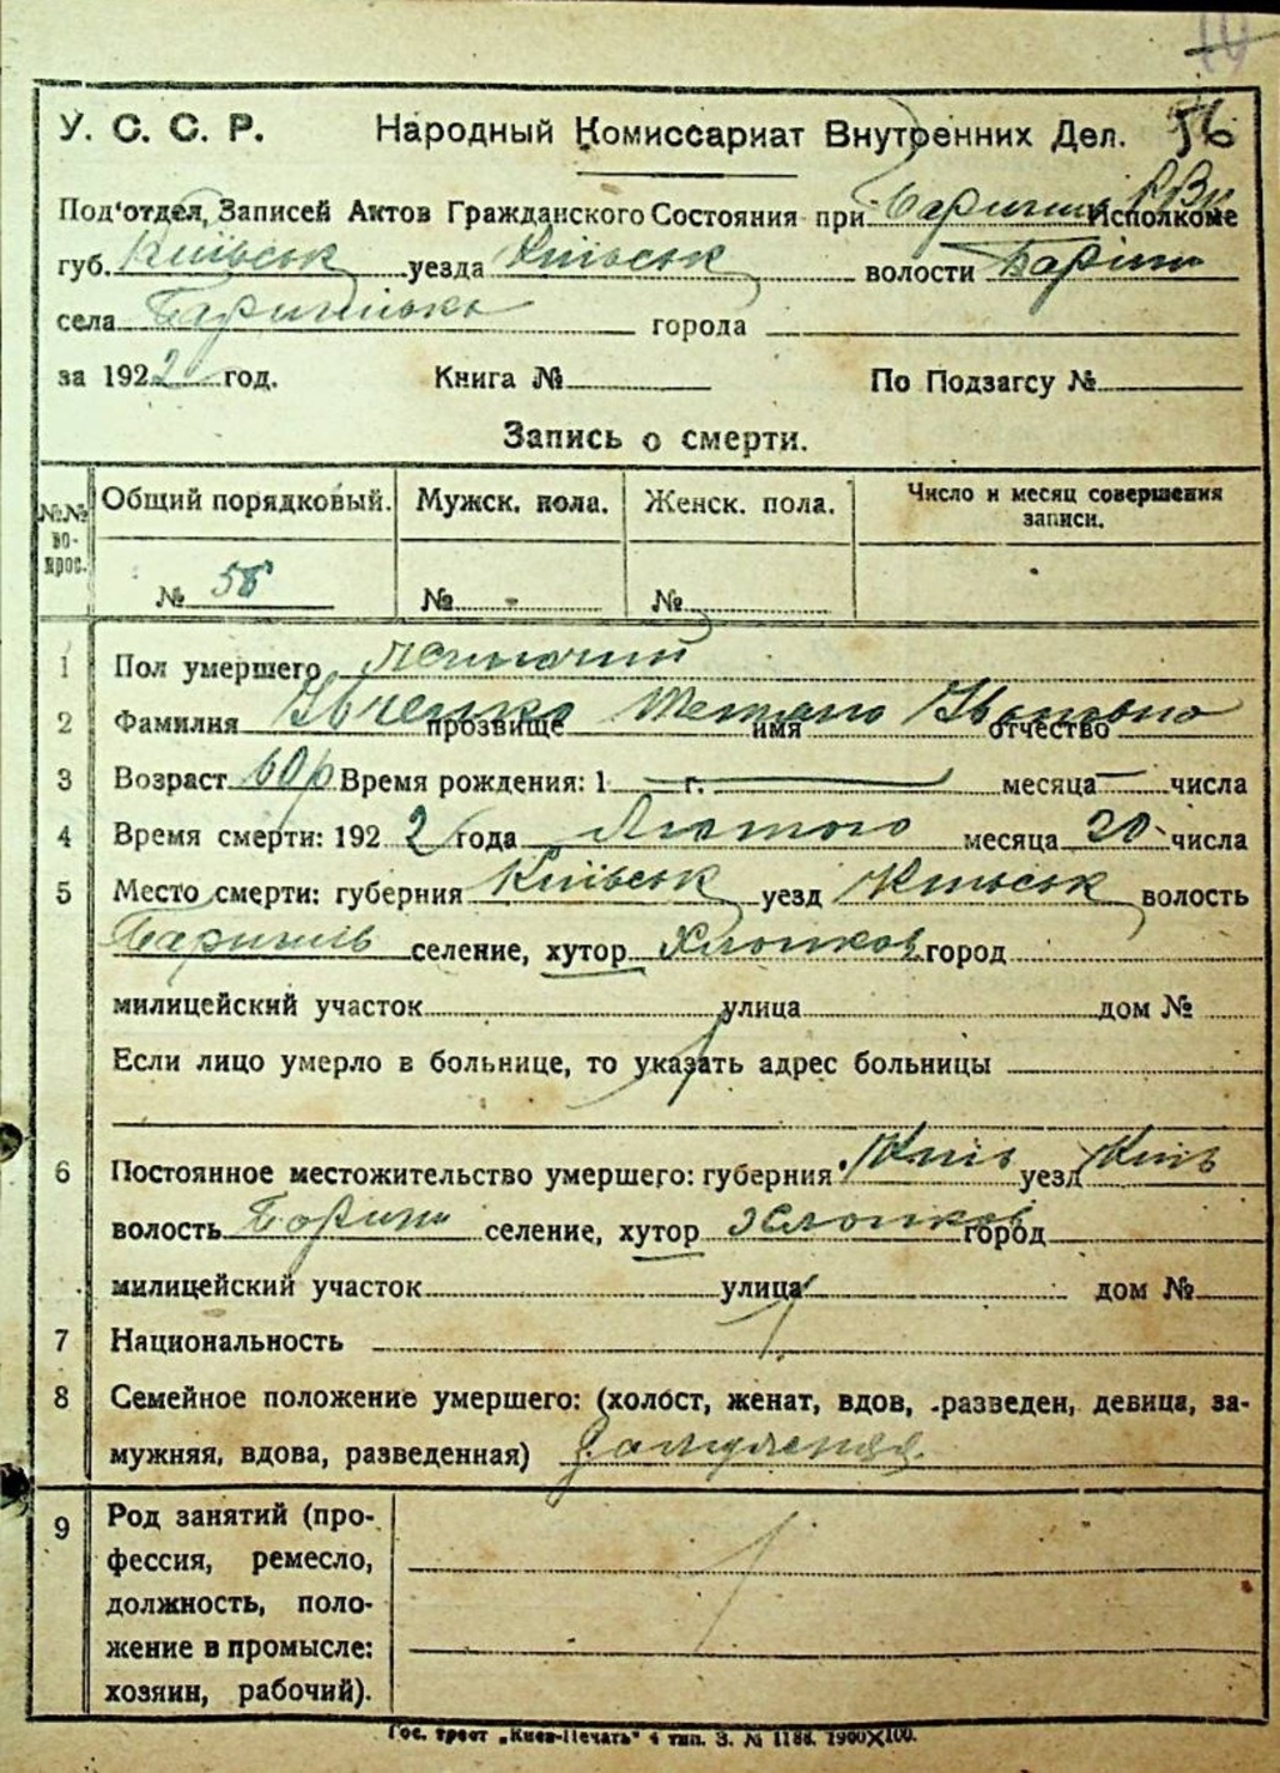 19
У. С. С. Р. Народный Комиссариат Внутренних Дел. 56
Под'отдел, Записей Актов Гражданского Состояния при Исполкоме
губ. Київськ уезда Київськ волости Бариш
села города
за 1922 год. Книга № По Подзагсу №
Запись о смерти.
№№ вопрос. Общий порядковый. Мужск. пола. Женск. пола. Число и месяц совершения записи.
№ 56 № - №
1 Пол умершего жиночий
2 Фамилия Ивченко прозвище Тетяна имя Ивановна отчество
3 Возраст 60 р Время рождения: 1 — г. — месяца — числа
4 Время смерти: 1922 года Лютого месяца 20 числа
5 Место смерти: губерния Київськ уезд Київськ волость
Баришль селение, хутор Хлопков город
милицейский участок улица дом №
Если лицо умерло в больнице, то указать адрес больницы
6 Постоянное местожительство умершего: губерния Київ уезд Київ
волость Бориш селение, хутор Хлопков город
милицейский участок улица дом №
7 Национальность
8 Семейное положение умершего: (холост, женат, вдов, разведен, девица, за-
мужняя, вдова, разведенная) Замужняя.
9 Род занятий (про-
фессия, ремесло,
должность, поло-
жение в промысле:
хозяин, рабочий).
Гос. трест „Киев-Печать" 4 тип. З. № 1188. 1900×100.